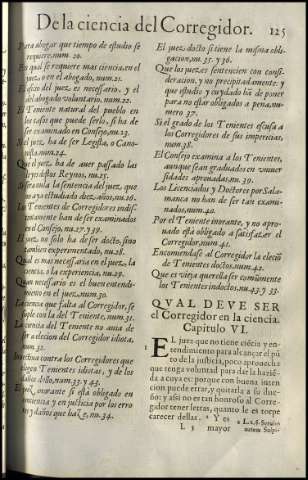 De la ciencia del Corregidor. 125
Para abogar que tiempo de estudio se
requiere, num. 20.
En qual se requiere mas ciencia, en el
juez, o en el abogado, num. 21.
El oficio del juez es necessario, y el
del abogado voluntario, num. 22.
El Teniente natural del pueblo en
los casos que puede serlo, si ha de
ser examinado en Consejo, nu. 23.
Si el juez, ha de ser Legista, o Cano-
nista, num. 24.
Que el juez ha de auer passado las
leyes destos Reynos, num. 25.
Si es nula la sentencia del juez, que
no aya estudiado diez años, nu. 26.
Los Tenientes de Corregidores indis-
tintamente han de ser examinados
en Consejo, nu. 27. y 39.
El juez no solo ha de ser docto, sino
tambien experimentado, nu. 28.
Qual es mas necessaria en el juez, la
ciencia, o la experiencia, nu. 29.
Quan necessario es el buen entendi-
miento en el juez, num. 30.
La ciencia que falta al Corregidor, se
suple con la del Teniente, num. 31.
La ciencia del Teniente no auia de
ser a eleccion del Corregidor idiota,
num. 32.
Inuectiua contra los Corregidores que
eligen Tenientes idiotas, y de los
daños dello, num. 33. y 43.
El juez ignorante si está obligado en
conciencia y en justicia por los erro
res y daños que haze, nu. 34.
El juez docto si tiene la misma obli-
gacion, nu. 35. y 36.
Que los juezes sentencien con consi-
deracion, y no precipitadamente y
que estudio y cuydado hã de poner
para no estar obligados a pena, nu-
mero 37.
Si el grado de los Tenientes escusa a
los Corregidores de sus impericias,
num. 38.
El Consejo examina a los Tenientes,
aunque sean graduados en vniuer
sidades aprouadas, nu. 39.
Los Licenciados y Doctores por Sala-
manca no han de ser tan exami-
nados, num. 40.
Por el Teniente ignorante, y no apro-
uado está obligado a satisfazer el
Corregidor, num. 41.
Encomiendase al Corregidor la elecciõ
de Tenientes doctos, num. 42.
Que es viteja querella ser comũmente
los Tenientes indoctos, nu. 43. y 33.
QVAL DEVE SER
el Corregidor en la ciencia.
Capitulo VI.
1 EL juez que no tiene ciẽcia y en-
tendimiento para alcançar el pũ
to de la justicia, poco aprouecha
que tenga voluntad para dar la hazié-
da a cuya es: porque con buena inten
cion puede errar, y quitarla a su due-
ño: y assi no es tan honroso al Corregi-
dor tener letras, quanto le es torpe
carecer dellas. a Y es
L 3 mayor